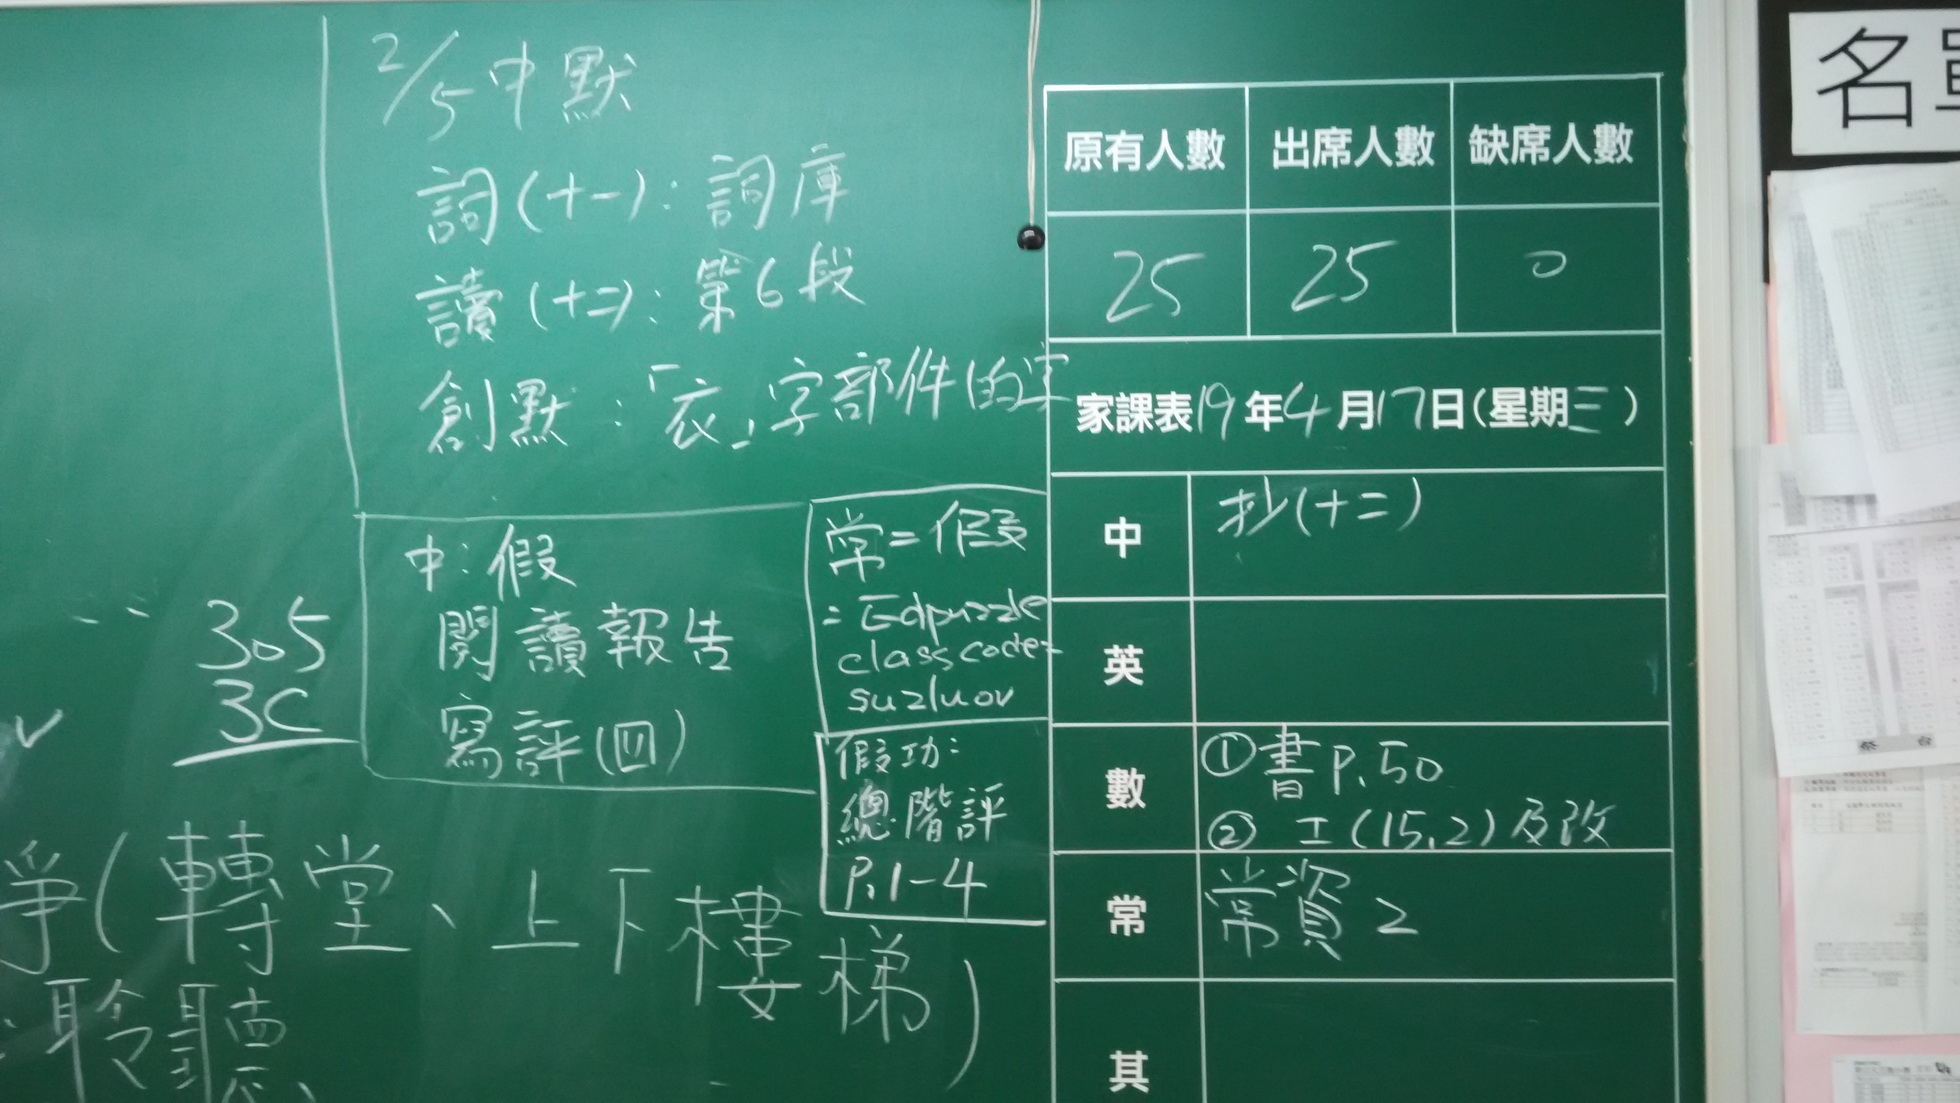 2/5 中默
詞(十一)：詞庫
讀(十二)：第6段
創默：「衣」字部件的字
中：假
閱讀報告
寫評(四)
常=假
= Edpuzzle
class code=
suzluov
假功：
總階評
P.1-4
305
3C
淨(轉堂、上下樓梯)
聆聽
原有人數 出席人數 缺席人數
25 25 0
家課表19年4月17日(星期三)
中 抄(十二)
英
數 ①書P.50
② 工(15.2)及改
常 常資2
其
名單